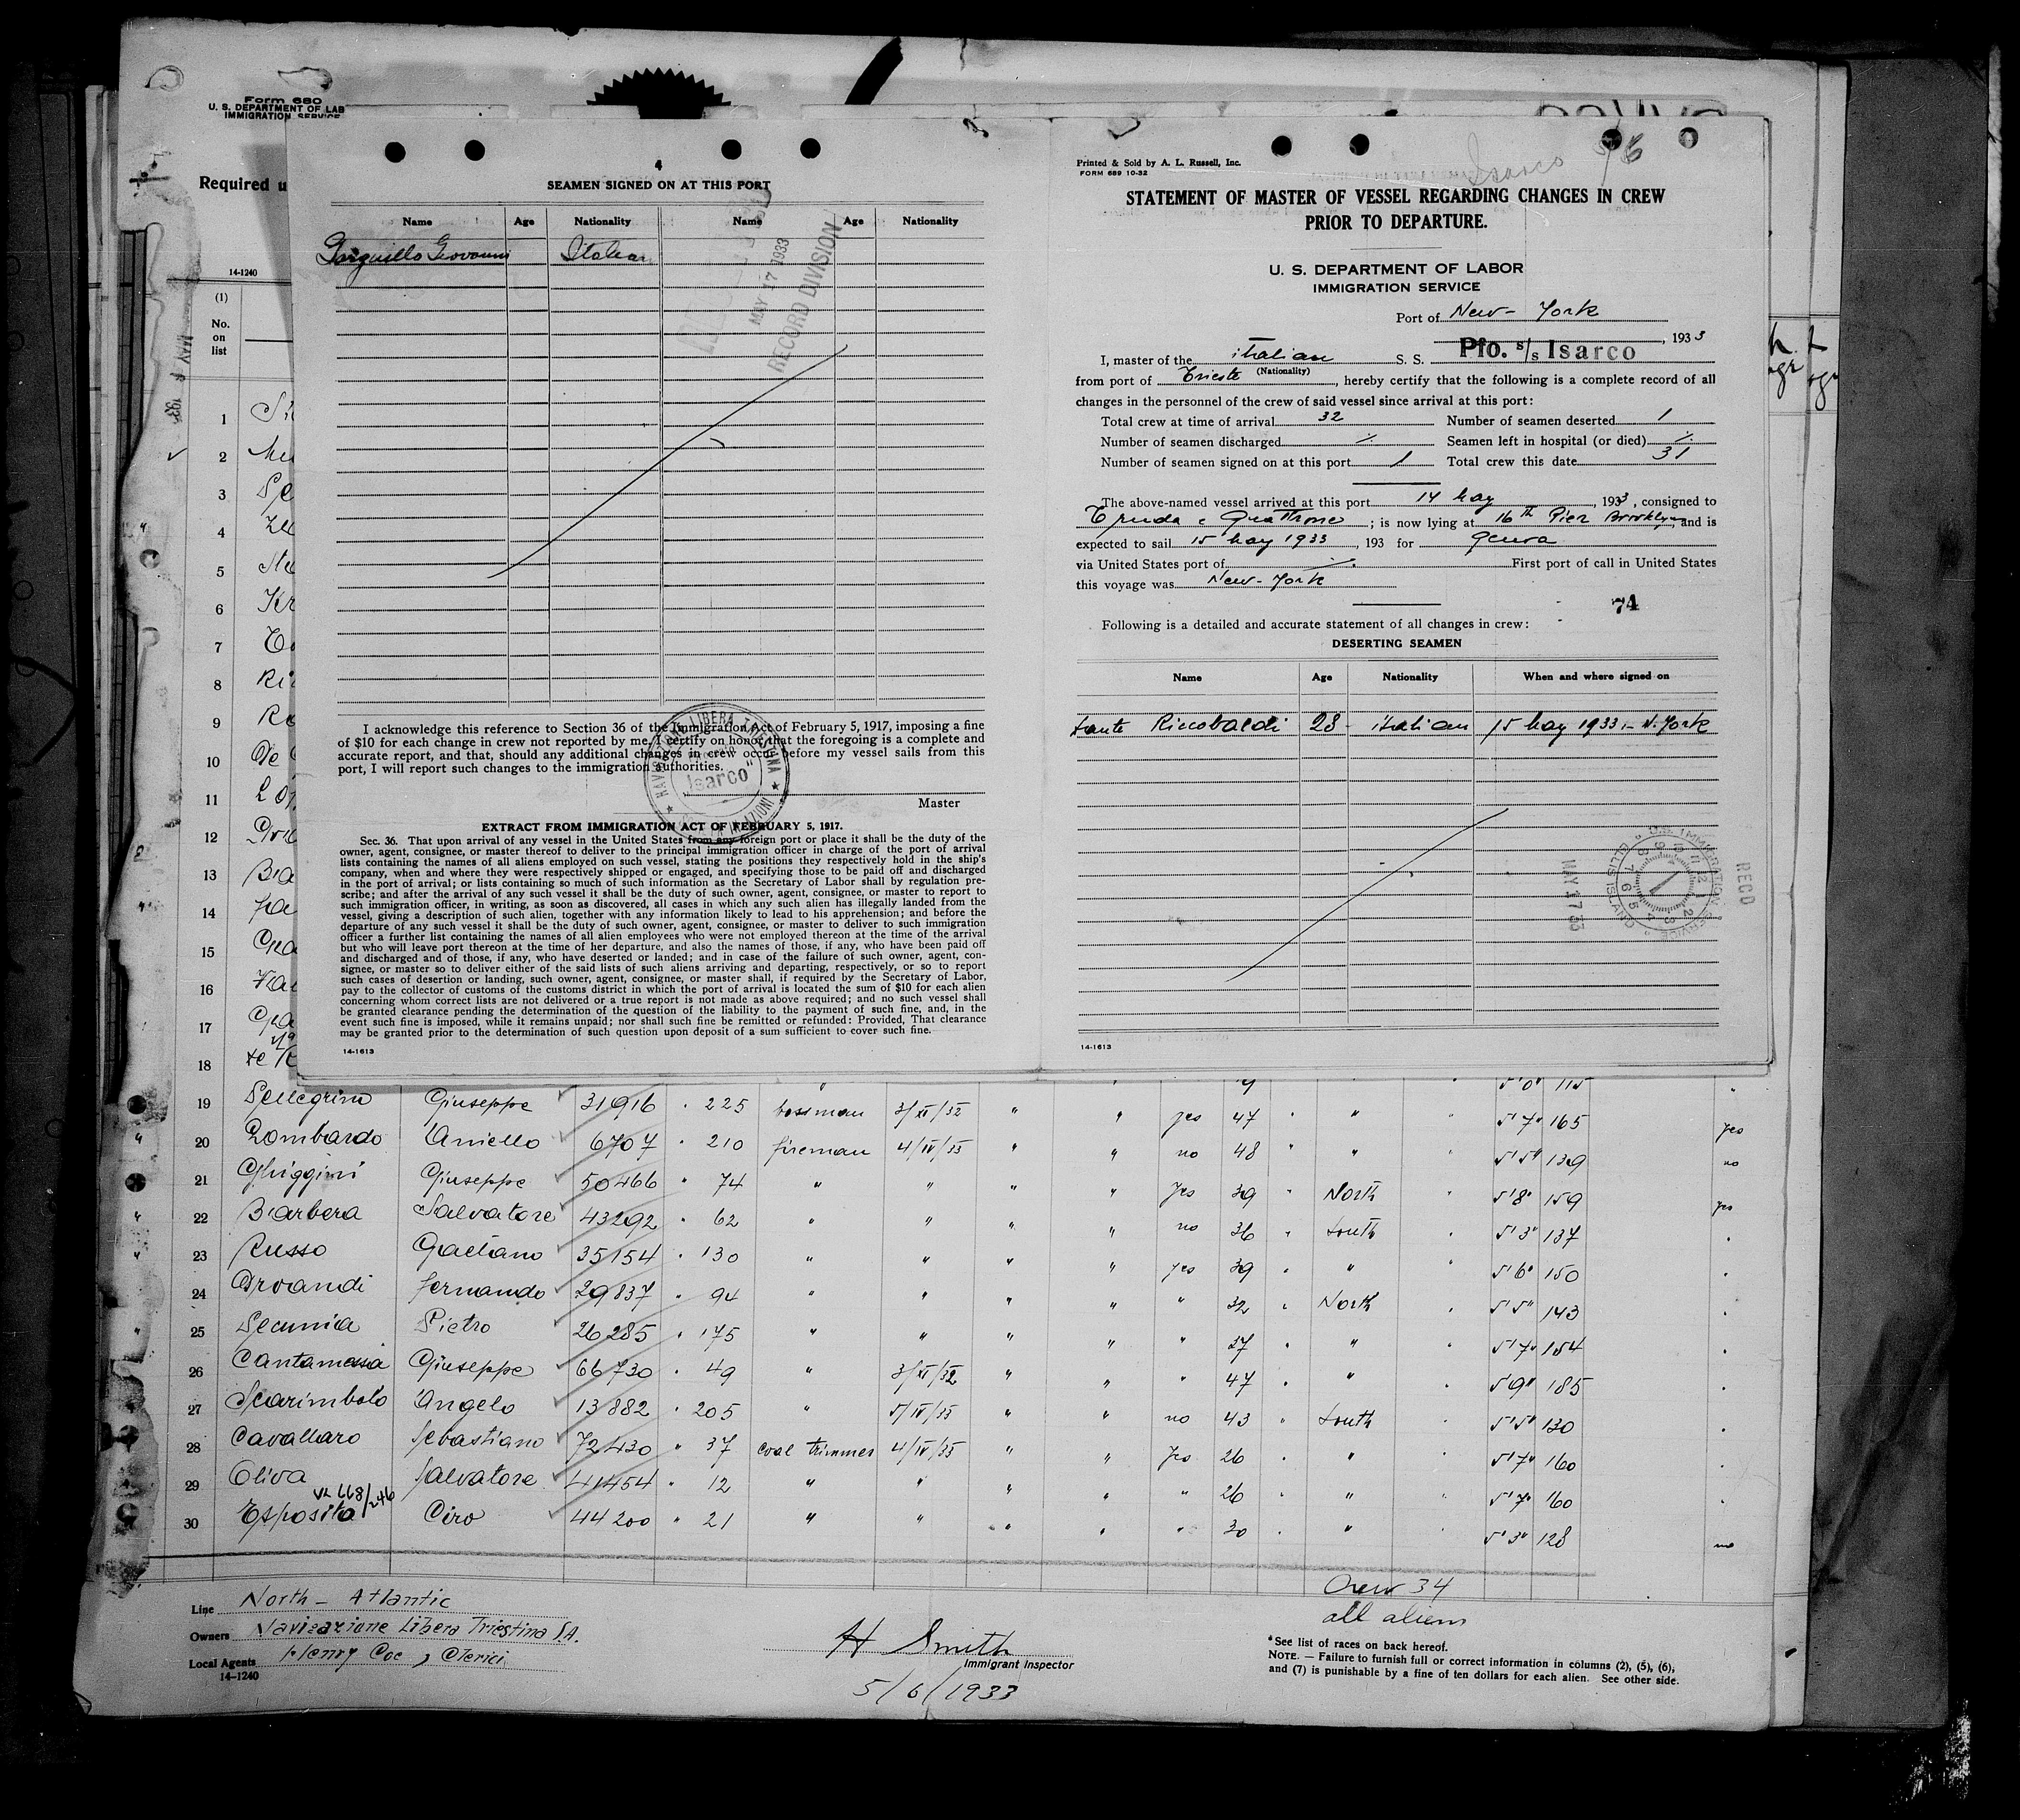 Form 680
U. S. DEPARTMENT OF LAB
IMMIGRATION SERVICE
Required u
14-1240
(1)
No.
on
list
1
2
3
4
5
6
7
8
9
10
11
12
13
14
15
16
17
18
4
SEAMEN SIGNED ON AT THIS PORT
Name Age Nationality Name Age Nationality
Giovanni Italian
MAY 17 1933
RECORD DIVISION
I acknowledge this reference to Section 36 of the Immigration Act of February 5, 1917, imposing a fine
of $10 for each change in crew not reported by me. I certify on honor that the foregoing is a complete and
accurate report, and that, should any additional changes in crew occur before my vessel sails from this
port, I will report such changes to the immigration authorities.
"Isarco"
Master
EXTRACT FROM IMMIGRATION ACT OF FEBRUARY 5, 1917.
Sec. 36. That upon arrival of any vessel in the United States from any foreign port or place it shall be the duty of the
owner, agent, consignee, or master thereof to deliver to the principal immigration officer in charge of the port of arrival
lists containing the names of all aliens employed on such vessel, stating the positions they respectively hold in the ship's
company, when and where they were respectively shipped or engaged, and specifying those to be paid off and discharged
in the port of arrival; or lists containing so much of such information as the Secretary of Labor shall by regulation pre-
scribe; and after the arrival of any such vessel it shall be the duty of such owner, agent, consignee, or master to report to
such immigration officer, in writing, as soon as discovered, all cases in which any such alien has illegally landed from the
vessel, giving a description of such alien, together with any information likely to lead to his apprehension; and before the
departure of any such vessel it shall be the duty of such owner, agent, consignee, or master to deliver to such immigration
officer a further list containing the names of all alien employees who were not employed thereon at the time of the arrival
but who will leave port thereon at the time of her departure, and also the names of those, if any, who have been paid off
and discharged and of those, if any, who have deserted or landed; and in case of the failure of such owner, agent, con-
signee, or master so to deliver either of the said lists of such aliens arriving and departing, respectively, or so to report
such cases of desertion or landing, such owner, agent, consignee, or master shall, if required by the Secretary of Labor,
pay to the collector of customs of the customs district in which the port of arrival is located the sum of $10 for each alien
concerning whom correct lists are not delivered or a true report is not made as above required; and no such vessel shall
be granted clearance pending the determination of the question of the liability to the payment of such fine, and, in the
event such fine is imposed, while it remains unpaid; nor shall such fine be remitted or refunded: Provided, That clearance
may be granted prior to the determination of such question upon deposit of a sum sufficient to cover such fine.
14-1613
Isarco
Printed & Sold by A. L. Russell, Inc.
FORM 689 10-32
STATEMENT OF MASTER OF VESSEL REGARDING CHANGES IN CREW
PRIOR TO DEPARTURE.
U. S. DEPARTMENT OF LABOR
IMMIGRATION SERVICE
Port of New-York
, 1933
I, master of the italian S. S. Pfo. s/s Isarco
(Nationality)
from port of Trieste, hereby certify that the following is a complete record of all
changes in the personnel of the crew of said vessel since arrival at this port:
Total crew at time of arrival 32 Number of seamen deserted 1
Number of seamen discharged Seamen left in hospital (or died)
Number of seamen signed on at this port 1 Total crew this date 31
The above-named vessel arrived at this port 14 May, 1933, consigned to
; is now lying at 16th Pier Brooklyn, and is
expected to sail 15 May 1933, 193 for Genoa
via United States port of First port of call in United States
this voyage was New-York
74
Following is a detailed and accurate statement of all changes in crew:
DESERTING SEAMEN
Name Age Nationality When and where signed on
Sante Riccobaldi 28 italian 15 May 1933 - N. York
RECD
U.S. IMMIGRATION SERVICE
ELLIS ISLAND
MAY 17 33
14-1613
19 Pellegrini Giuseppe 31916 " 225 3/XI/32 " " yes 47 " " " 5'7" 165 yes
20 Lombardo Aniello 6707 " 210 fireman 4/IV/33 " " no 48 " " " 5'5" 139 no
21 Ghiggini Giuseppe 50466 " 74 " " " " yes 39 " North " 5'8" 159 yes
22 Barbera Salvatore 43292 " 62 " " " " no 36 " South " 5'3" 137 "
23 Russo Gaetano 35154 " 130 " " " " yes 39 " " " 5'6" 150 "
24 Fernando 29837 " 94 " " " " " 32 " North " 5'5" 143 "
25 Pietro 26285 " 175 " " " " " 37 " " " 5'7" 154 "
26 Giuseppe 66730 " 49 " 3/XI/32 " " " 47 " " " 5'9" 185 "
27 Scarimbolo Angelo 13882 " 205 " 5/IV/33 " " no 43 " South " 5'5" 130 "
28 Cavallaro Sebastiano 72430 " 37 coal trimmer 4/IV/33 " " yes 26 " " " 5'7" 160 "
29 Oliva Salvatore 41454 " 12 " " " " " 26 " " " 5'7" 160 "
30 Esposito Ciro 44200 " 21 " " " " " 30 " " " 5'3" 128 no
Line North - Atlantic
Owners Navigazione Libera Triestina S.A.
Local Agents Henry Coe, Clerici
14-1240
H Smith
Immigrant Inspector
5/6/1933
Crew 34
all aliens
*See list of races on back hereof.
NOTE. — Failure to furnish full or correct information in columns (2), (5), (6),
and (7) is punishable by a fine of ten dollars for each alien. See other side.